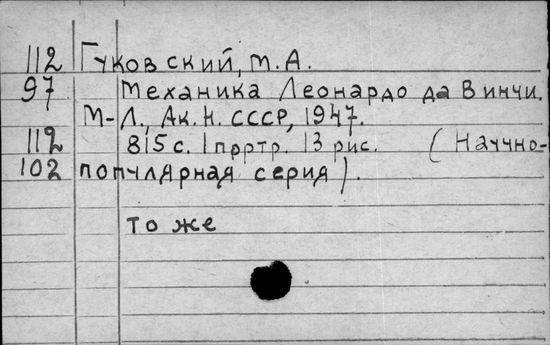 112 Гуковский, М.А.
97 Механика Леонардо да Винчи.
М-Л., Ак.Н. СССР, 1947.
112 815 с. 1 прртр. 13 рис. (Научно-
102 популярная серия).
то же